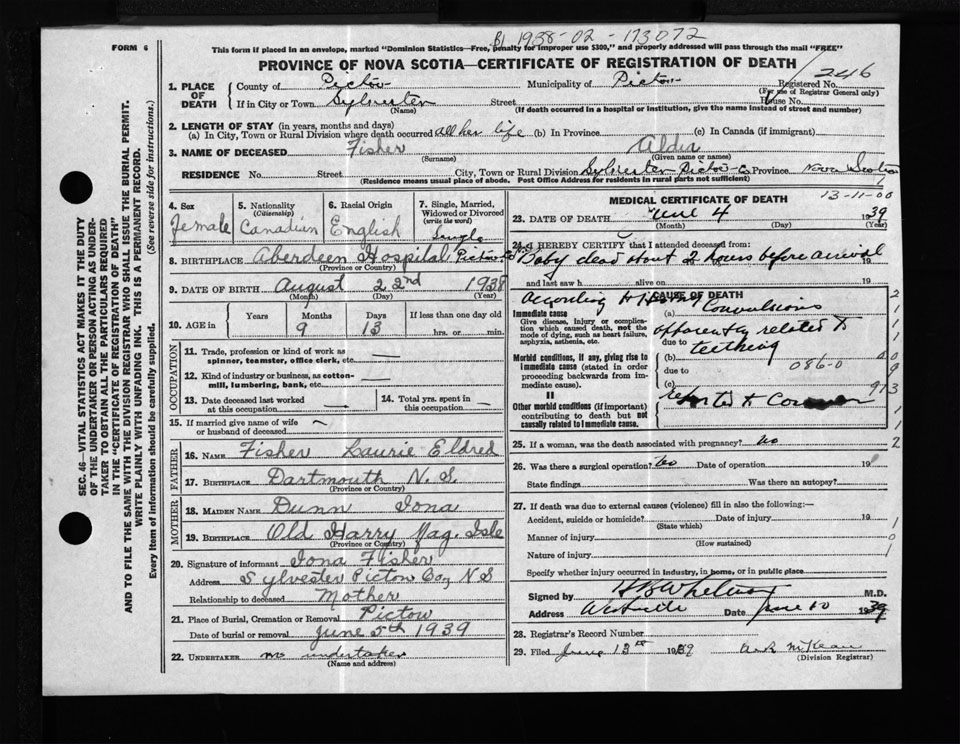 B1 1938-02-173072
FORM 6
This form if placed in an envelope, marked "Dominion Statistics—Free, penalty for improper use $300," and properly addressed will pass through the mail "FREE"
PROVINCE OF NOVA SCOTIA—CERTIFICATE OF REGISTRATION OF DEATH
1. PLACE OF DEATH County of Pictou Municipality of Pictou Registered No. 246
(For use of Registrar General only)
If in City or Town Sylvester Street House No.
(Name) (If death occurred in a hospital or institution, give the name instead of street and number)
2. LENGTH OF STAY (in years, months and days)
(a) In City, Town or Rural Division where death occurred all her life (b) In Province (c) In Canada (if immigrant)
3. NAME OF DECEASED Fisher Alder
(Surname) (Given name or names)
RESIDENCE No. Street City, Town or Rural Division Sylvester Pictou Co Province Nova Scotia
(Residence means usual place of abode. Post Office Address for residents in rural parts not sufficient)
4. Sex Female
5. Nationality (Citizenship) Canadian
6. Racial Origin English
7. Single, Married, Widowed or Divorced (write the word) Single
8. BIRTHPLACE Aberdeen Hospital Pictou Co
(Province or Country)
9. DATE OF BIRTH August 22nd 1938
(Month) (Day) (Year)
10. AGE in Years Months 9 Days 13 If less than one day old hrs. or min.
OCCUPATION
11. Trade, profession or kind of work as spinner, teamster, office clerk, etc. —
12. Kind of industry or business, as cotton-mill, lumbering, bank, etc. —
13. Date deceased last worked at this occupation — 14. Total yrs. spent in this occupation —
15. If married give name of wife or husband of deceased —
FATHER
16. NAME Fisher Laurie Eldred
17. BIRTHPLACE Dartmouth N. S.
(Province or Country)
MOTHER
18. MAIDEN NAME Dunn Iona
19. BIRTHPLACE Old Harry Mag. Isle
(Province or Country)
20. Signature of informant Iona Fisher
Address Sylvester Pictou Co, N S
Relationship to deceased Mother
21. Place of Burial, Cremation or Removal Pictou
Date of burial or removal June 5th 1939
22. UNDERTAKER no undertaker
(Name and address)
MEDICAL CERTIFICATE OF DEATH
13-11-00
23. DATE OF DEATH June 4 1939
(Month) (Day) (Year)
24. I HEREBY CERTIFY that I attended deceased from:
Baby dead about 2 hours before arrival 19
and last saw h alive on 19
CAUSE OF DEATH
According to History
Immediate cause (a) Convulsions
Give disease, injury or complication which caused death, not the mode of dying, such as heart failure, asphyxia, asthenia, etc.
apparently related to
due to teething
Morbid conditions, if any, giving rise to immediate cause (stated in order proceeding backwards from immediate cause).
(b) 086-0
due to
(c) 973
II
Other morbid conditions (if important) contributing to death but not causally related to immediate cause.
reported to Coroner
25. If a woman, was the death associated with pregnancy? No
26. Was there a surgical operation? No Date of operation 19
State findings Was there an autopsy?
27. If death was due to external causes (violence) fill in also the following:—
Accident, suicide or homicide? Date of injury 19
(State which)
Manner of injury
(How sustained)
Nature of injury
Specify whether injury occurred in industry, in home, or in public place
Signed by M.D.
Address Westville Date June 10 1939
28. Registrar's Record Number
29. Filed June 13th 1939
(Division Registrar)
SEC. 46—VITAL STATISTICS ACT MAKES IT THE DUTY OF THE UNDERTAKER OR PERSON ACTING AS UNDERTAKER TO OBTAIN ALL THE PARTICULARS REQUIRED IN THE "CERTIFICATE OF REGISTRATION OF DEATH" AND TO FILE THE SAME WITH THE DIVISION REGISTRAR WHO SHALL ISSUE THE BURIAL PERMIT.
WRITE PLAINLY WITH UNFADING INK. THIS IS A PERMANENT RECORD.
Every item of Information should be carefully supplied. (See reverse side for instructions.)